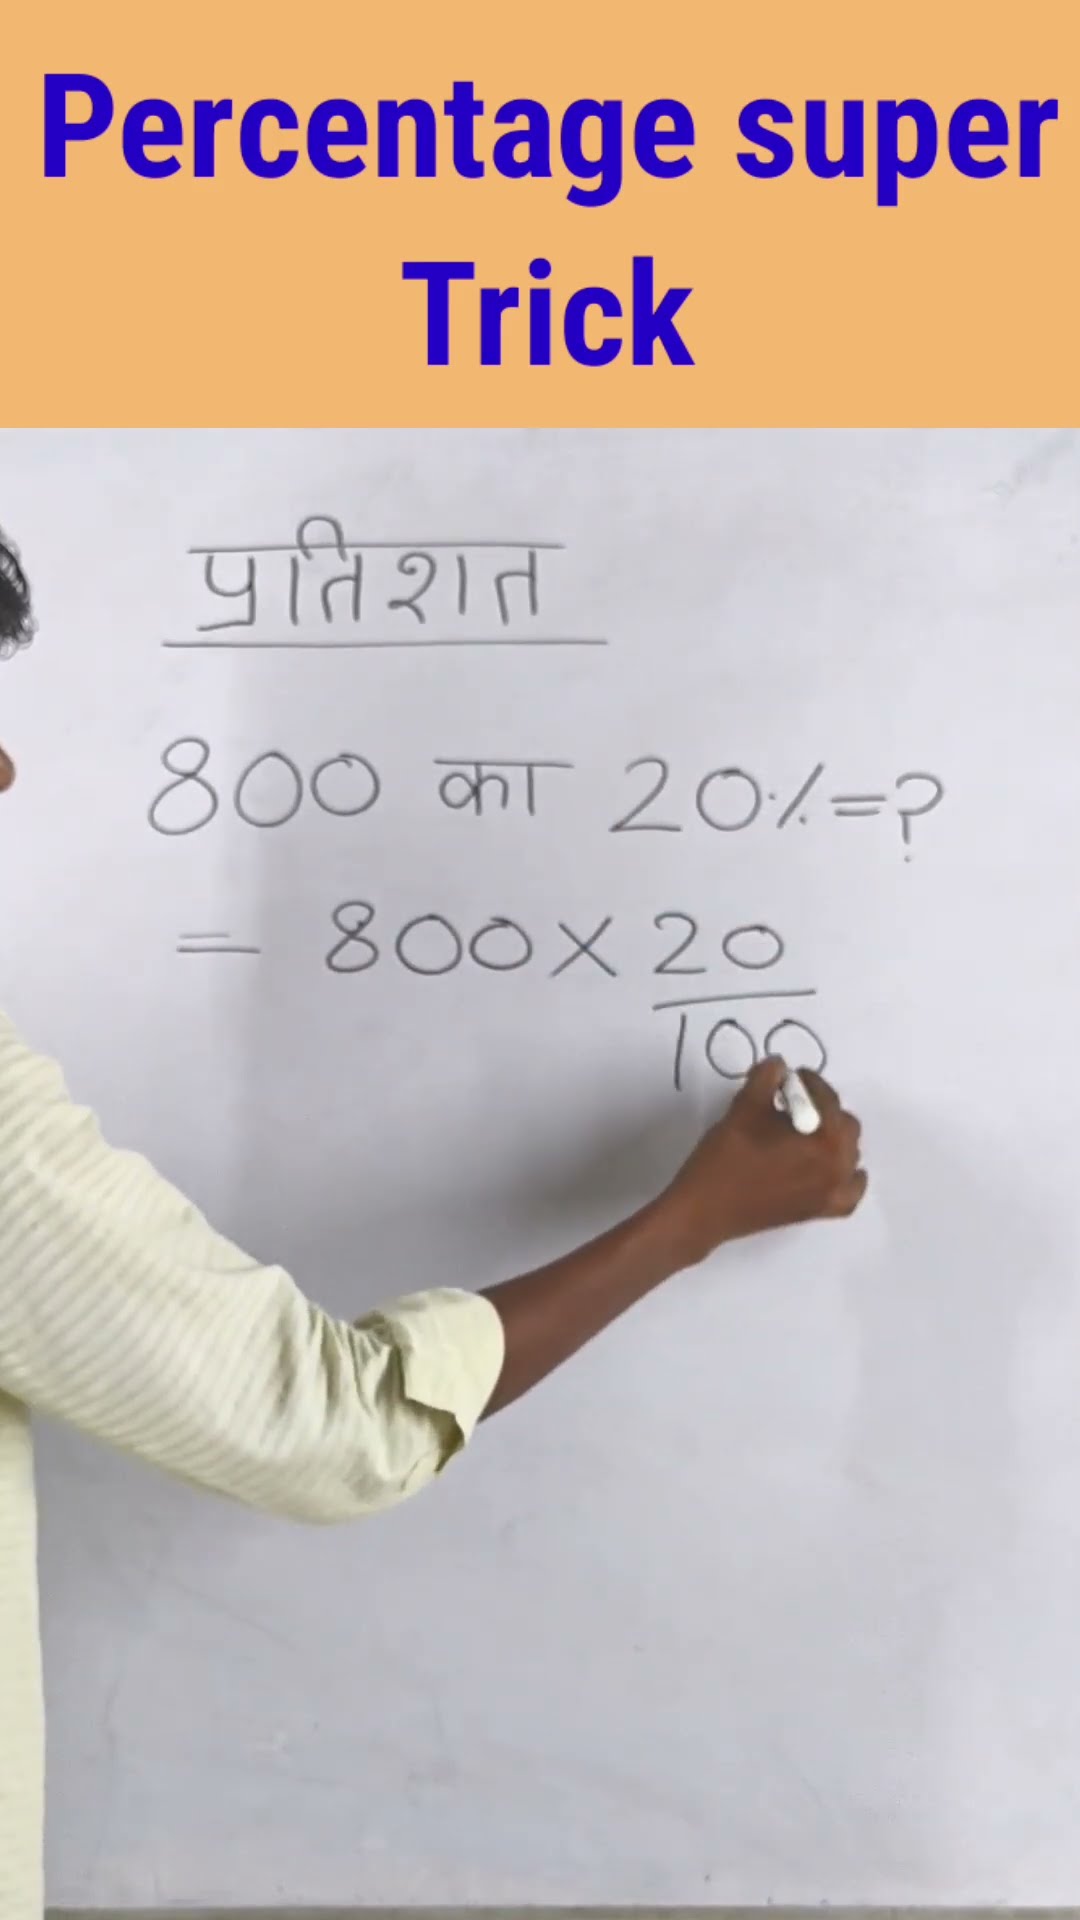 Percentage super
Trick
प्रतिशत
800 का 20%=?
= 800×20
100